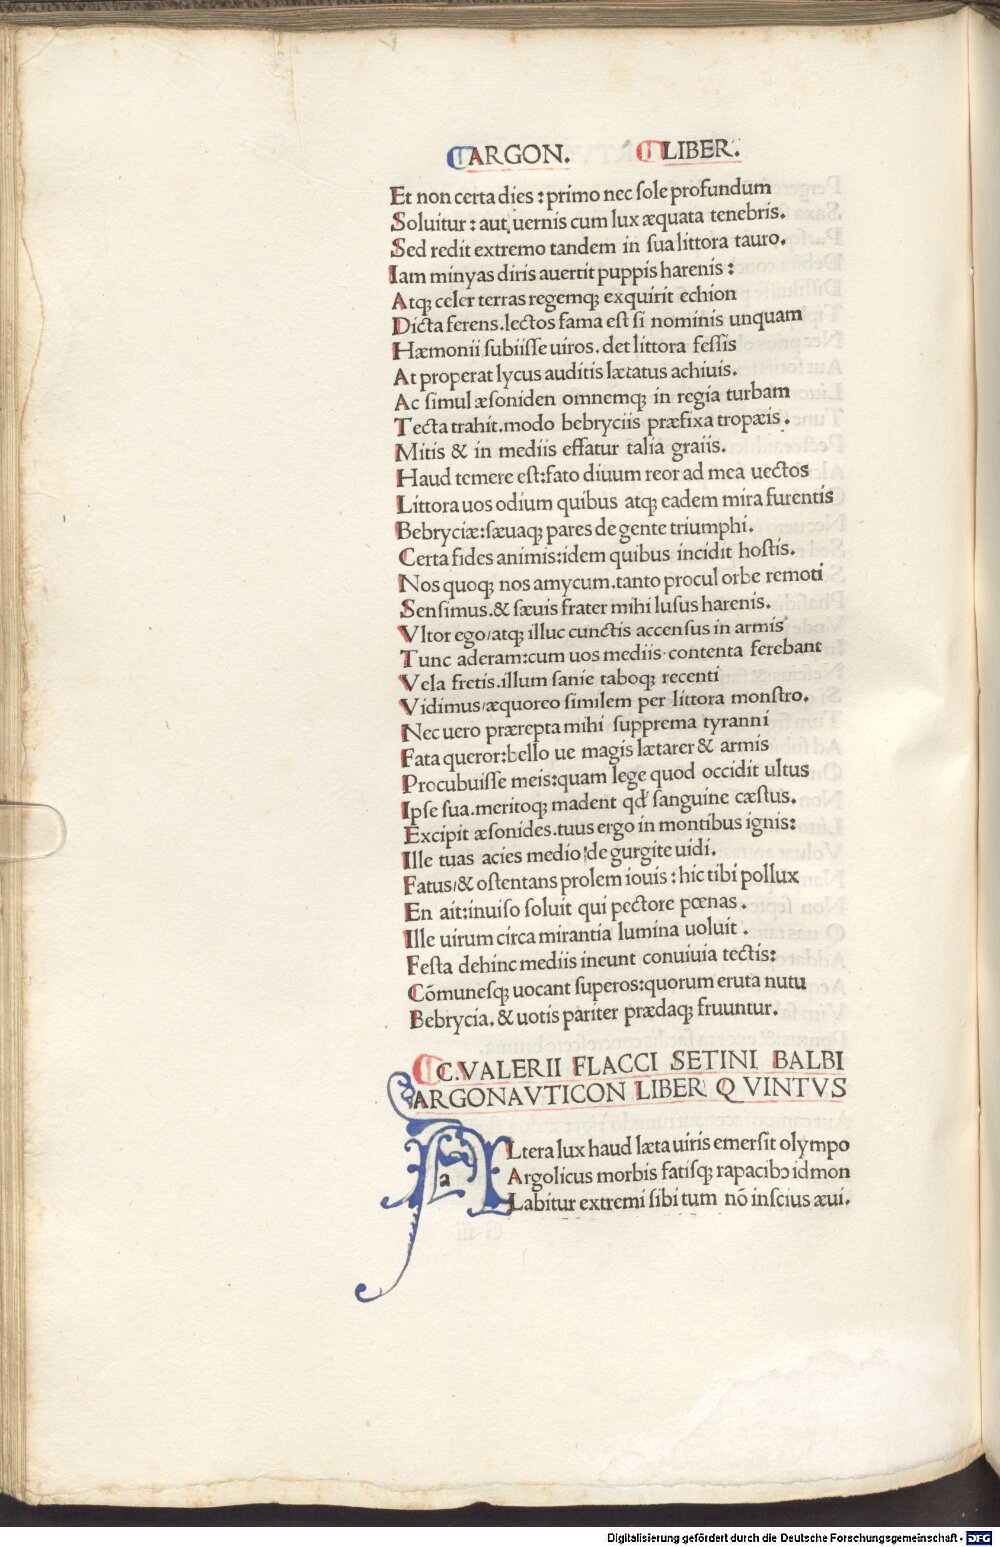 ARGON. LIBER.
Et non certa dies : primo nec ſole profundum
Soluitur : aut uernis cum lux æquata tenebris.
Sed redit extremo tandem in ſua littora tauro.
Iam minyas diris auertit puppis harenis :
Atq; celer terras regemq; exquirit echion
Dicta ferens.lectos fama eſt ſi nominis unquam
Hæmonii ſubiiſſe uiros. det littora feſſis
At properat lycus auditis lætatus achiuis.
Ac ſimul æſoniden omnemq; in regia turbam
Tecta trahit.modo bebryciis præfixa tropæis.
Mitis & in mediis effatur talia graiis.
Haud temere eſt:fato diuum reor ad mea uectos
Littora uos odium quibus atq; eadem mira furentis
Bebryciæ:ſæuaq; pares de gente triumphi.
Certa fides animis:idem quibus incidit hoſtis.
Nos quoq; nos amycum.tanto procul orbe remoti
Senſimus.& ſæuis frater mihi luſus harenis.
Vltor ego/atq; illuc cunctis accenſus in armis
Tunc aderam:cum uos mediis contenta ferebant
Vela fretis.illum ſanie taboq; recenti
Vidimus/æquoreo ſimilem per littora monſtro.
Nec uero prærepta mihi supprema tyranni
Fata queror:bello ue magis lætarer & armis
Procubuiſſe meis:quam lege quod occidit ultus
Ipſe ſua.meritoq; madent qđ ſanguine cæſtus.
Excipit æſonides.tuus ergo in montibus ignis:
Ille tuas acies medio de gurgite uidi.
Fatus/& oſtentans prolem iouis : hic tibi pollux
En ait:inuiſo ſoluit qui pectore pœnas.
Ille uirum circa mirantia lumina uoluit.
Feſta dehinc mediis ineunt conuiuia tectis:
Cōmuneſq; uocant ſuperos:quorum eruta nutu
Bebrycia.& uotis pariter prædaq; fruuntur.
C.VALERII FLACCI SETINI BALBI
ARGONAVTICON LIBER QVINTVS
a Ltera lux haud læta uiris emerſit olympo
Argolicus morbis fatiſq; rapacibꝰ idmon
Labitur extremi ſibi tum nō inſcius æui.
Digitalisierung gefördert durch die Deutsche Forschungsgemeinschaft - DFG